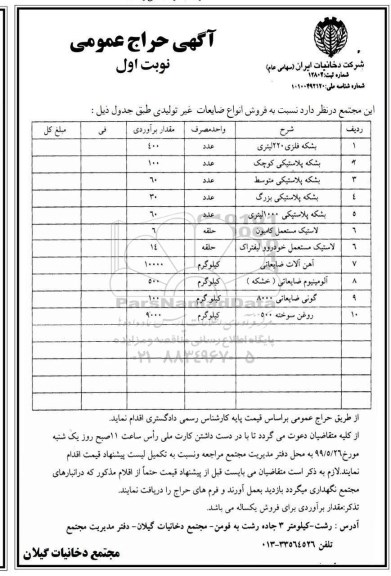 آگهی حراج عمومی
نوبت اول
شرکت دخانیات ایران (سهامی عام)
شماره ثبت: ۱۲۸۰۲
شماره شناسه ملی: ۱۰۱۰۰۴۹۲۱۲۰
این مجتمع درنظر دارد نسبت به فروش انواع ضایعات غیر تولیدی طبق جدول ذیل :
ردیف شرح واحدمصرف مقدار برآوردی فی مبلغ کل
۱ بشکه فلزی۲۲۰لیتری عدد ۴۰۰
۲ بشکه پلاستیکی کوچک عدد ۱۰۰
۳ بشکه پلاستیکی متوسط عدد ۶۰
۴ بشکه پلاستیکی بزرگ عدد ۳۰
۵ بشکه پلاستیکی ۱۰۰۰لیتری عدد ۶۰
۶ لاستیک مستعمل کامیون حلقه ۶
۶ لاستیک مستعمل خودروو لیفتراک حلقه ۱۴
۷ آهن آلات ضایعاتی کیلوگرم ۱۰۰۰۰
۸ آلومینیوم ضایعاتی ( خشکه ) کیلوگرم ۵۰۰
۹ گونی ضایعاتی ۸۰۰۰ کیلوگرم ۱۰۰
۱۰ روغن سوخته ۵۰۰ کیلوگرم ۹۰۰۰
ParsNamadData
پایگاه اطلاع رسانی مناقصه و مزایده
۰۲۱-۸۸۳۴۹۶۷۰-۵
از طریق حراج عمومی براساس قیمت پایه کارشناس رسمی دادگستری اقدام نماید.
از کلیه متقاضیان دعوت می گردد تا با در دست داشتن کارت ملی رأس ساعت ۱۱صبح روز یک شنبه
مورخ۹۹/۵/۲۶ به محل دفتر مدیریت مجتمع مراجعه ونسبت به تکمیل لیست پیشنهاد قیمت اقدام
نمایند.لازم به ذکر است متقاضیان می بایست قبل از پیشنهاد قیمت حتماً از اقلام مذکور که درانبارهای
مجتمع نگهداری میگردد بازدید بعمل آورند و فرم های حراج را دریافت نمایند.
تذکر:مقدار برآوردی برای فروش یکساله می باشد.
آدرس : رشت-کیلومتر ۳ جاده رشت به فومن- مجتمع دخانیات گیلان- دفتر مدیریت مجتمع
تلفن ۳۳۵۶۴۵۲۶-۰۱۳
مجتمع دخانیات گیلان